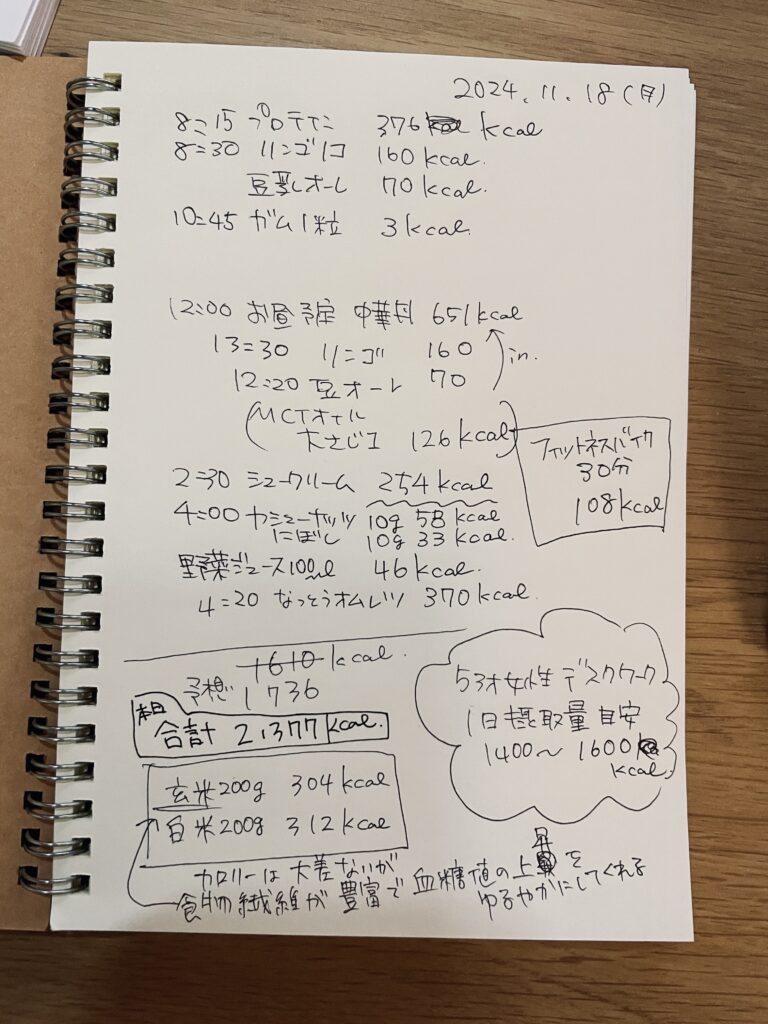 2024.11.18(月)
8:15 プロテイン 376 kcal
8:30 リンゴ1コ 160 kcal.
豆乳オーレ 70 kcal.
10:45 ガム1粒 3 kcal.
12:00 お昼予定 中華丼 651 kcal
13:30 リンゴ 160
in.
12:20 豆オーレ 70
(MCTオイル
大さじ1 126 kcal)
フィットネスバイク
30分
108 kcal
2:30 シュークリーム 254 kcal
4:00 カシューナッツ 10g 58 kcal
にぼし 10g 33 kcal.
野菜ジュース100ml 46 kcal.
4:20 なっとうオムレツ 370 kcal.
1610 kcal.
予想 1736
本日
合計 2.377 kcal.
53才女性 デスクワーク
1日摂取量目安
1400〜1600
kcal.
玄米200g 304 kcal
白米200g 312 kcal
カロリーは大差ないが
食物繊維が豊富で血糖値の上昇を
ゆるやかにしてくれる